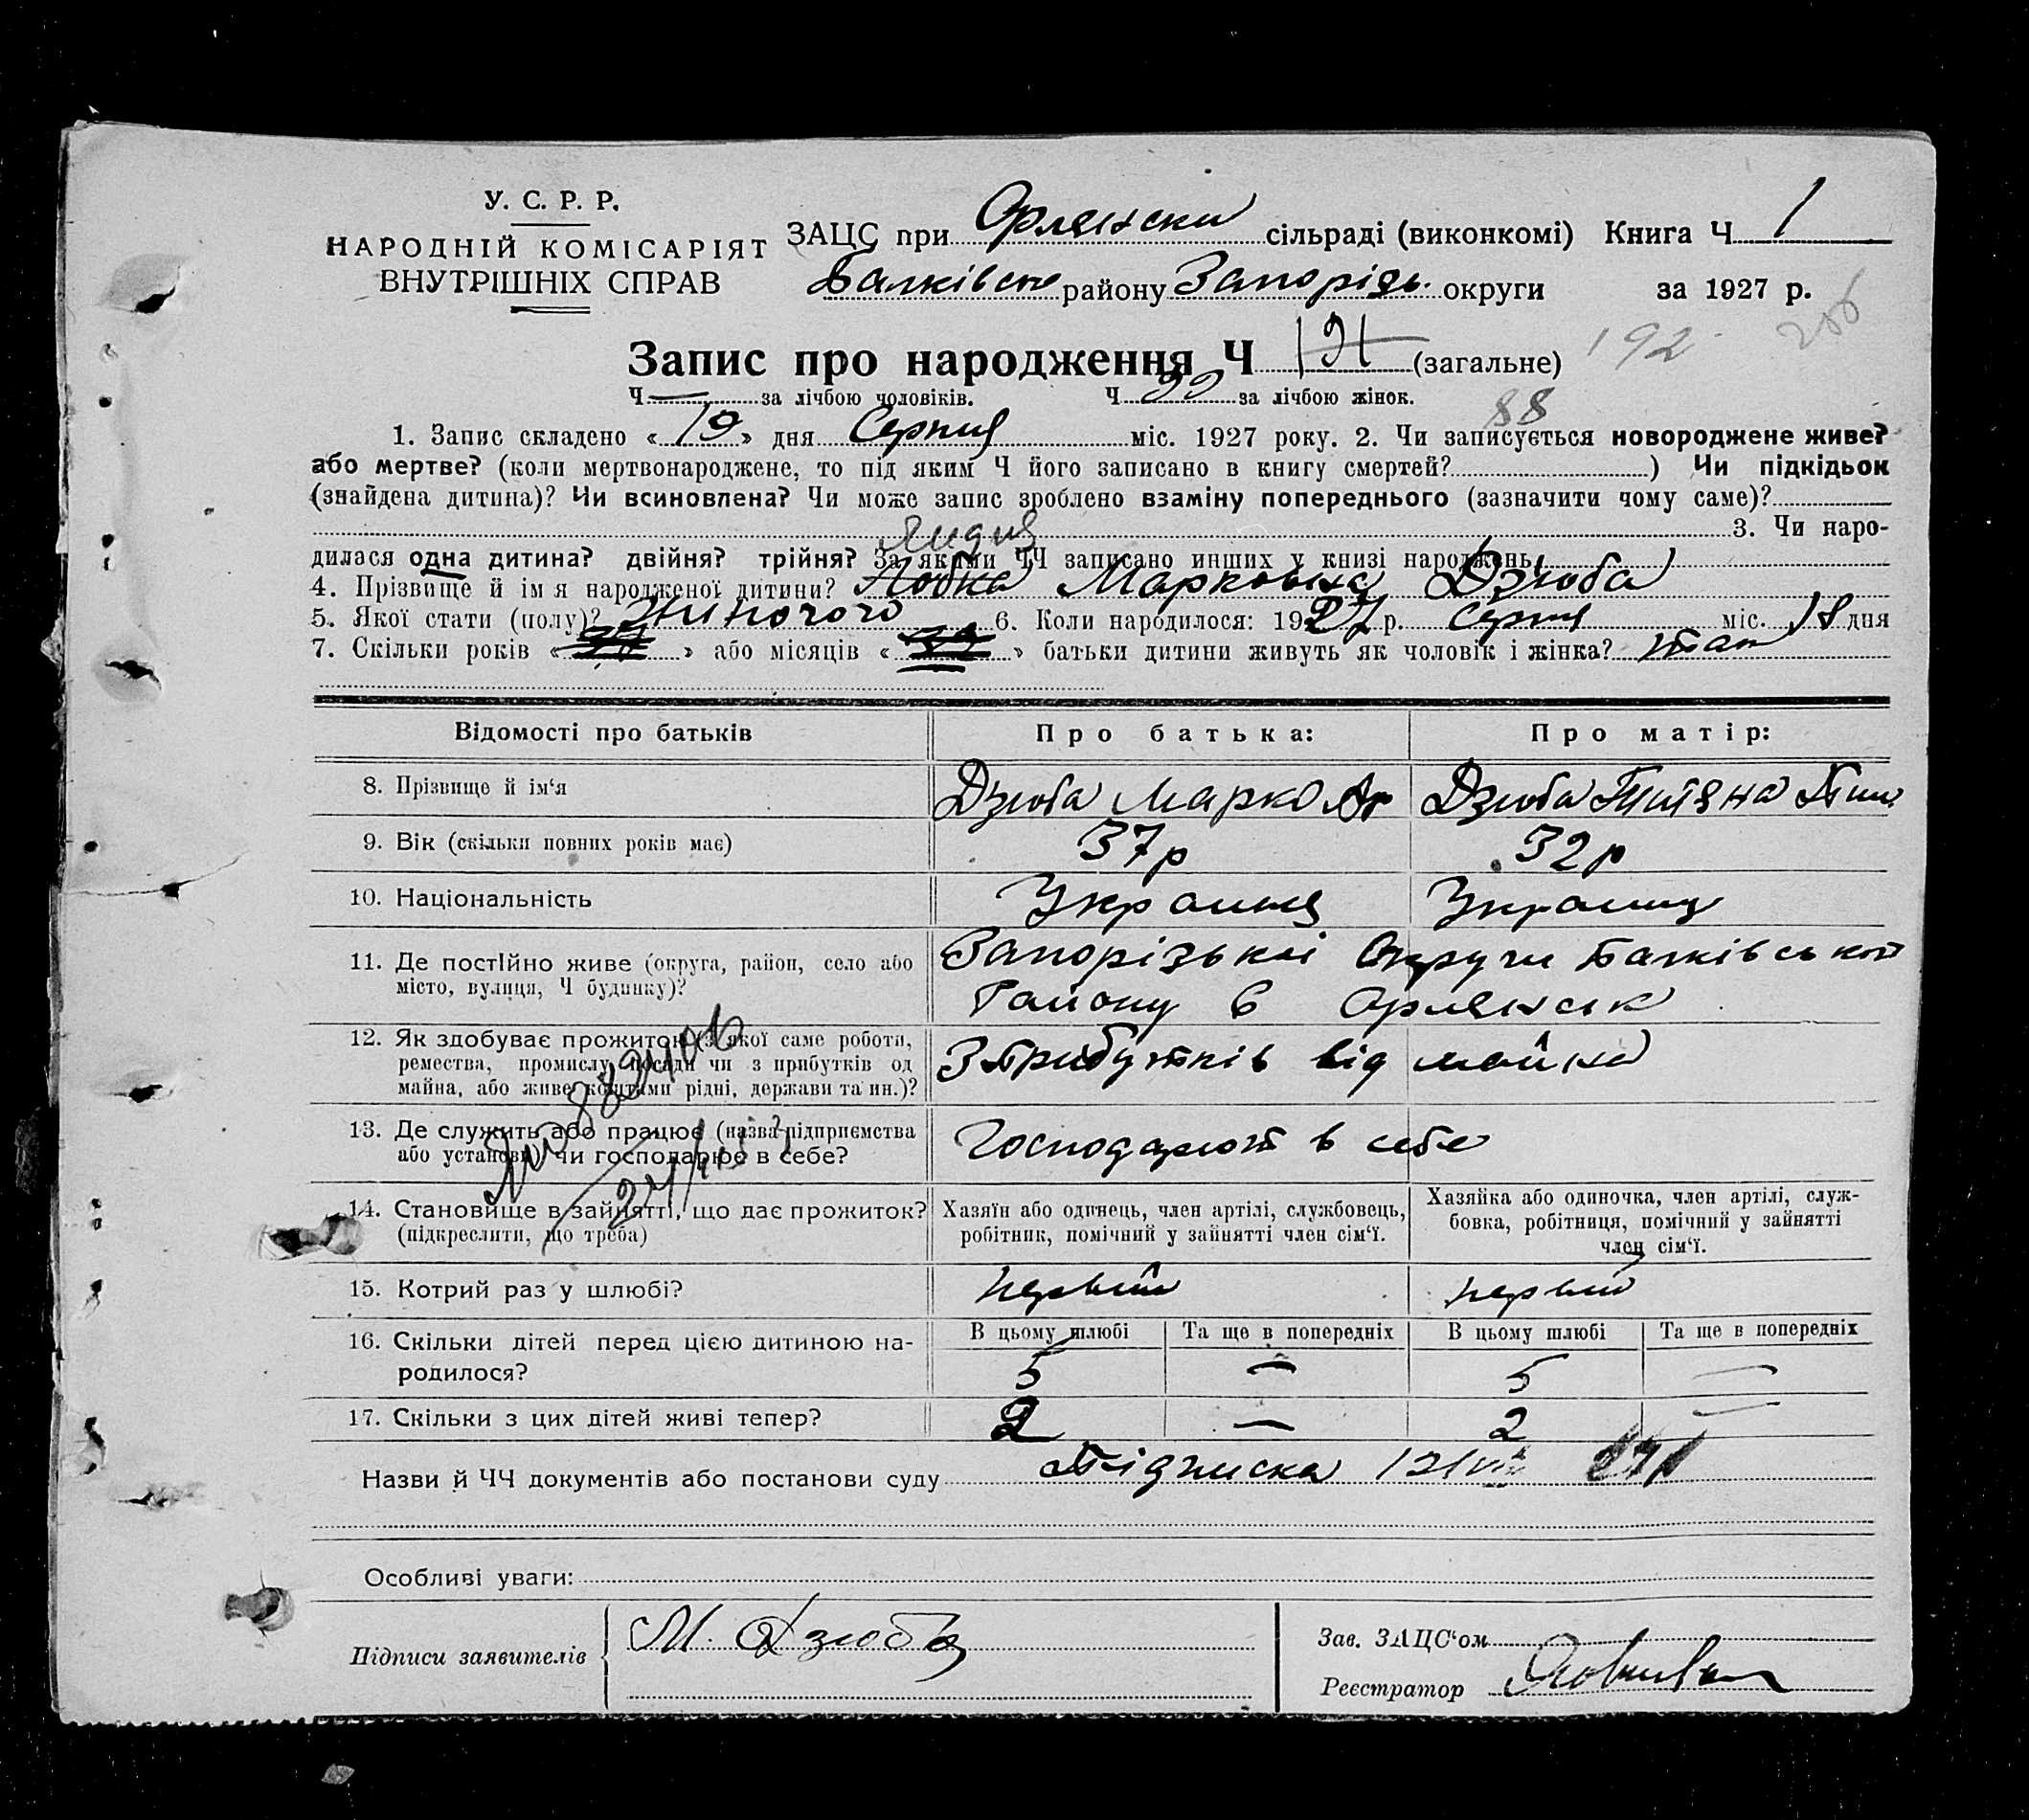 У. С. Р. Р.
НАРОДНІЙ КОМІСАРІЯТ
ВНУТРІШНІХ СПРАВ
ЗАЦС при Орлянски сільраді (виконкомі) Книга Ч 1
Балківсто району Запорізь. округи за 1927 р.
Запис про народження Ч (загальне) 192
Ч — за лічбою чоловіків. Ч за лічбою жінок. 88
1. Запис складено « 19 » дня Серпня міс. 1927 року. 2. Чи записується новороджене живе?
або мертве? (коли мертвонароджене, то під яким Ч його записано в книгу смертей? ) Чи підкідьок
(знайдена дитина)? Чи всиновлена? Чи може запис зроблено взаміну попереднього (зазначити чому саме)?
3. Чи наро-
дилася одна дитина? двійня? трійня? За якими ЧЧ записано инших у книзі народжень
Лидия
4. Прізвище й ім я народженої дитини? Марковна Дзюба
5. Якої стати (полу)? Жиночого 6. Коли народилося: 1927 р. Серпня міс. 18 дня
7. Скільки років « » або місяців « » батьки дитини живуть як чоловік і жінка? так
Відомості про батьків Про батька: Про матір:
8. Прізвище й ім‘я Дзюба Марко Дзюба Титяна
9. Вік (скільки повних років має) 37 р 32 р
10. Національність Украинц Украинц
11. Де постійно живе (округа, район, село або місто, вулиця, Ч будинку)? Запорізької Округи Балківської
Району с Орлянськ
12. Як здобуває прожиток (з якої саме роботи,
ремества, промислу, посади чи з прибутків од
майна, або живе коштами рідні, держави та ин.)? З Прибутків від майна
13. Де служить або працює (назва підприємства
або установи) чи господарює в себе? Господарюют в себе
14. Становище в зайнятті, що дає прожиток?
(підкреслити, що треба)
Хазяїн або одинець, член артілі, службовець,
робітник, помічний у зайнятті член сім‘ї.
Хазяйка або одиночка, член артілі, служ-
бовка, робітниця, помічний у зайнятті
член сім‘ї.
15. Котрий раз у шлюбі? первий первий
16. Скільки дітей перед цією дитиною на-
родилося?
В цьому шлюбі Та ще в попередніх В цьому шлюбі Та ще в попередніх
5 — 5 —
17. Скільки з цих дітей живі тепер? 2 — 2 —
Назви й ЧЧ документів або постанови суду Підписка
Особливі уваги:
Підписи заявителів М. Дзюба
Зав. ЗАЦС‘ом
Реєстратор